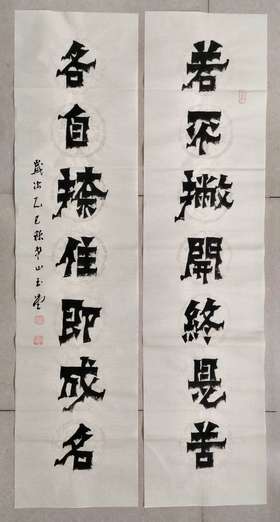 若不撇開終是苦
各自捺住即成名
歲次乙巳秋山玉